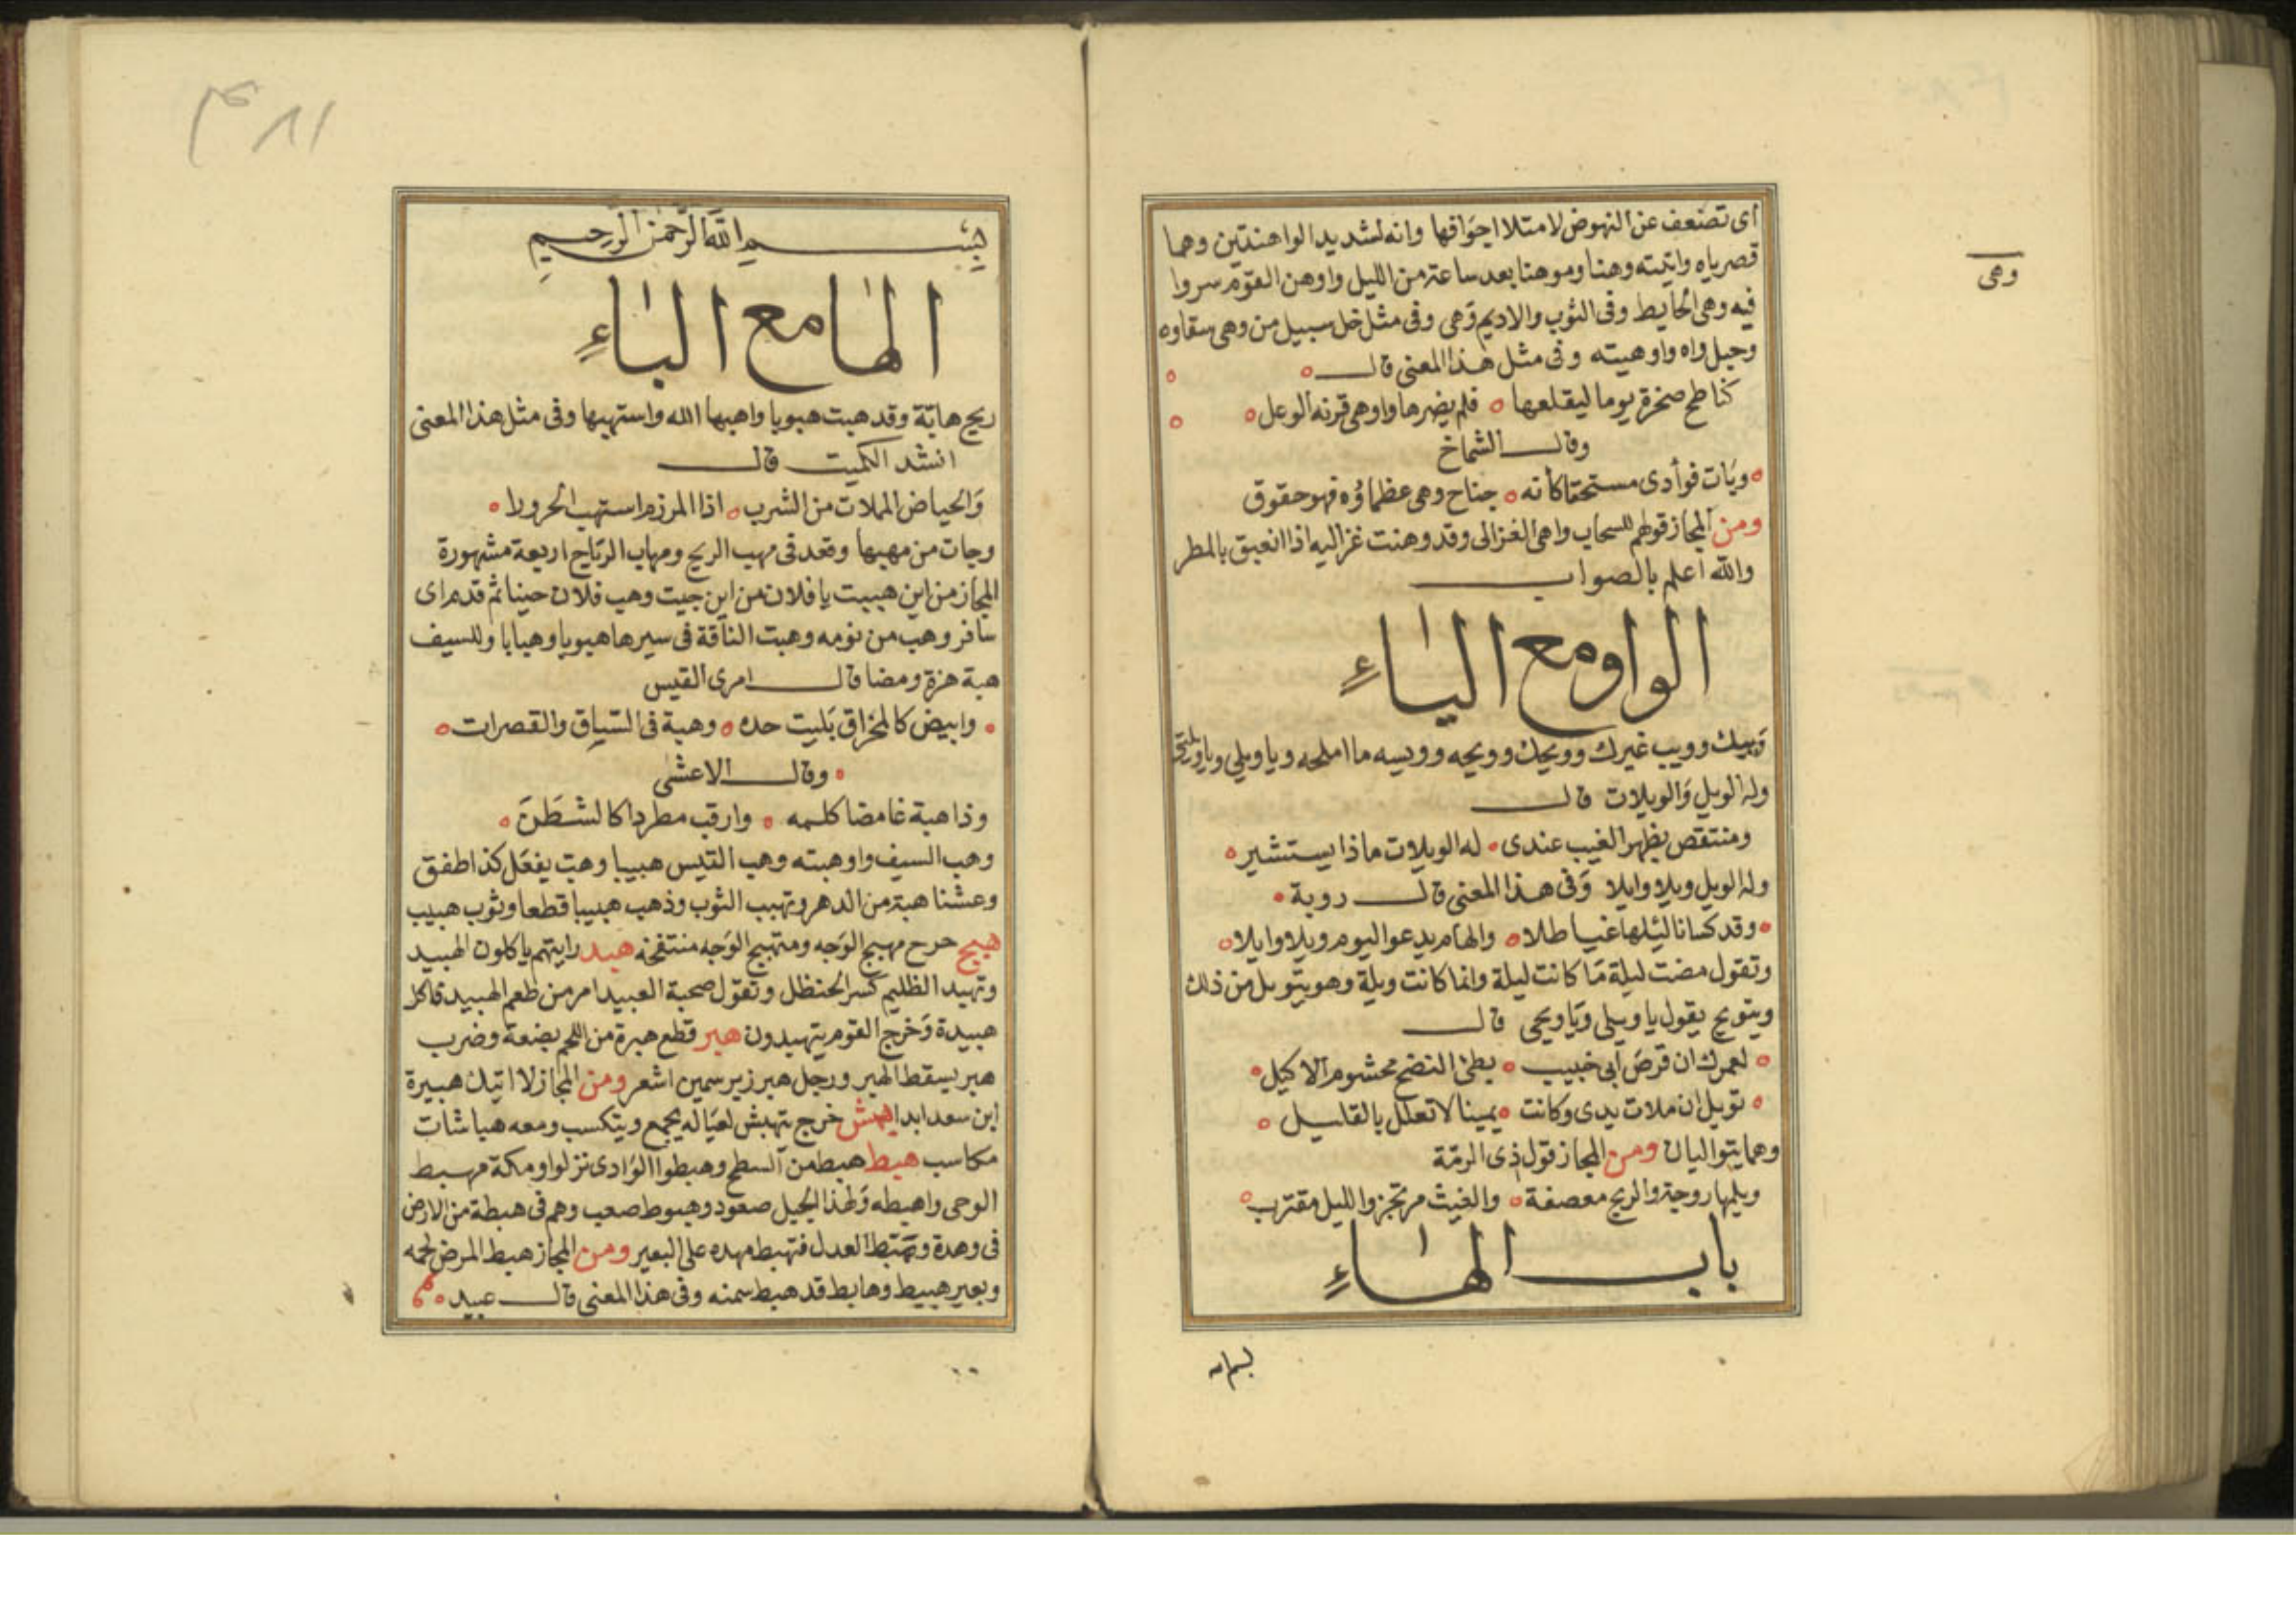 أى تضعف عن النهوض لامتلا اجوافها وانه لشديد الواهنتين وهما
قصرياه واتيته وهنا وموهنا بعد ساعة من الليل واوهن القوم سروا
فيه وهى الحايط وفى الثوب والاديم وَهى وفى مثل خل سبيل من وهى سقاوه
وحبل واه واوهيته وفى مثل هذا المعنى قال
كناطح صخرة يوما ليقلعها فلم يضرها واوهى قرنه الوعل
وقال الشماخ
وبات فوأدى مستحقا كانه جناح وهى عظماؤه فهو حقوق
ومن المجاز قولهم للسحاب واهى الغزالى وقد وهنت غزاليه اذا انعبق بالمطر
والله اعلم بالصواب
الواو مع الياءِ
وَيبك وويب غيرك وويحك وويحه وويسه ما املحه ويا ويلى ويا ويلتى
وله الويل وَالويلات قال
ومنتقص بظهر الغيب عندى له الويلات ماذا يستشير
وله الويل ويلا وايلا وَفى هذا المعنى قال روبة
وقد كسانا ليلها غياطلا والهام يدعوا ليوم ويلا وايلا
وتقول مضت ليلة مَا كانت ليلة وانما كانت ويلة وهو يتويل من ذلك
ويتويح يقول يا ويلى وَيا ويحى قال
لعمرك ان قرصَ أبى خبيب بطئ النضج محشوم الاكيل
تويل ان ملات يدى وكانت يمينا لا تعلل بالقليل
وهما يتواليان ومن المجاز قول ذى الرمّة
ويلمها روحة والريح معصفة والغيث مرتجز والليل مقترب
باب الهاءِ
بسم الله
وهى
٤٨١
بسم الله الرحمن الرحيم
الها مع الباءِ
ريح هابّة وقد هبت هبوبا واهبها الله واستهبها وفى مثل هذا المعنى
انشد الكميت قال
وَالحياض الملات من الشرب اذا المرزم استهب الحرورا
وجات من مهبها وقعد فى مهب الريح ومهاب الرياح اربعة مشهورة
المجاز من اين هببت يا فلان من اين جيت وهب فلان حينا ثم قدم اى
سافر وهب من نومه وهبت الناقة فى سيرها هبوبا وهبابا وللسيف
هبة هزة ومضا قال امرى القيس
وابيض كالمخراق بَليت حده وهبة فى السّياق والقصرات
وقال الاعشى
وذا هبة غامضا كلمه وارقب مطردا كالشطَنَ
وهب السيف واوهبته وهب التيس هبيبا وهبّ يفعَل كذا طفق
وعشنا هبة من الدهر وتهبب الثوب وذهب هبيبا قطعا وثوب هبيب
هبج حرح مهبج الوَجه ومتهبج الوَجه منتفخه هبد رايتهم ياكلون الهبيد
وتهبد الظليم كسر الحنظل وتقول صحبة العبيد امر من طعم الهبيد فاكل
هبيدة وَخرج القوم يتهبدون هبر قطع هبرة من اللحم بضعة وضرب
هبر يسقط الهبر ورجل هبر زبر سمين اشعر ومن المجاز لا اتيك هبيرة
ابن سعد ابدا هبش خرج تهبش لعيَاله يجمع ويتكسب ومعه هباشات
مكاسب هبط هبط من السطح وهبطوا الوَادى نزلوا ومكة مهبط
الوحى واهبطه وَلهذا الجبل صعود وهبوط صعب وهم فى هبطة من الارض
فى وهدة العدل فتهبط مهده على البعير ومن المجاز هبط المرض لحمه
وبعير هبيط وهابط قد هبط سمنه وفى هذا المعنى قال عبيد